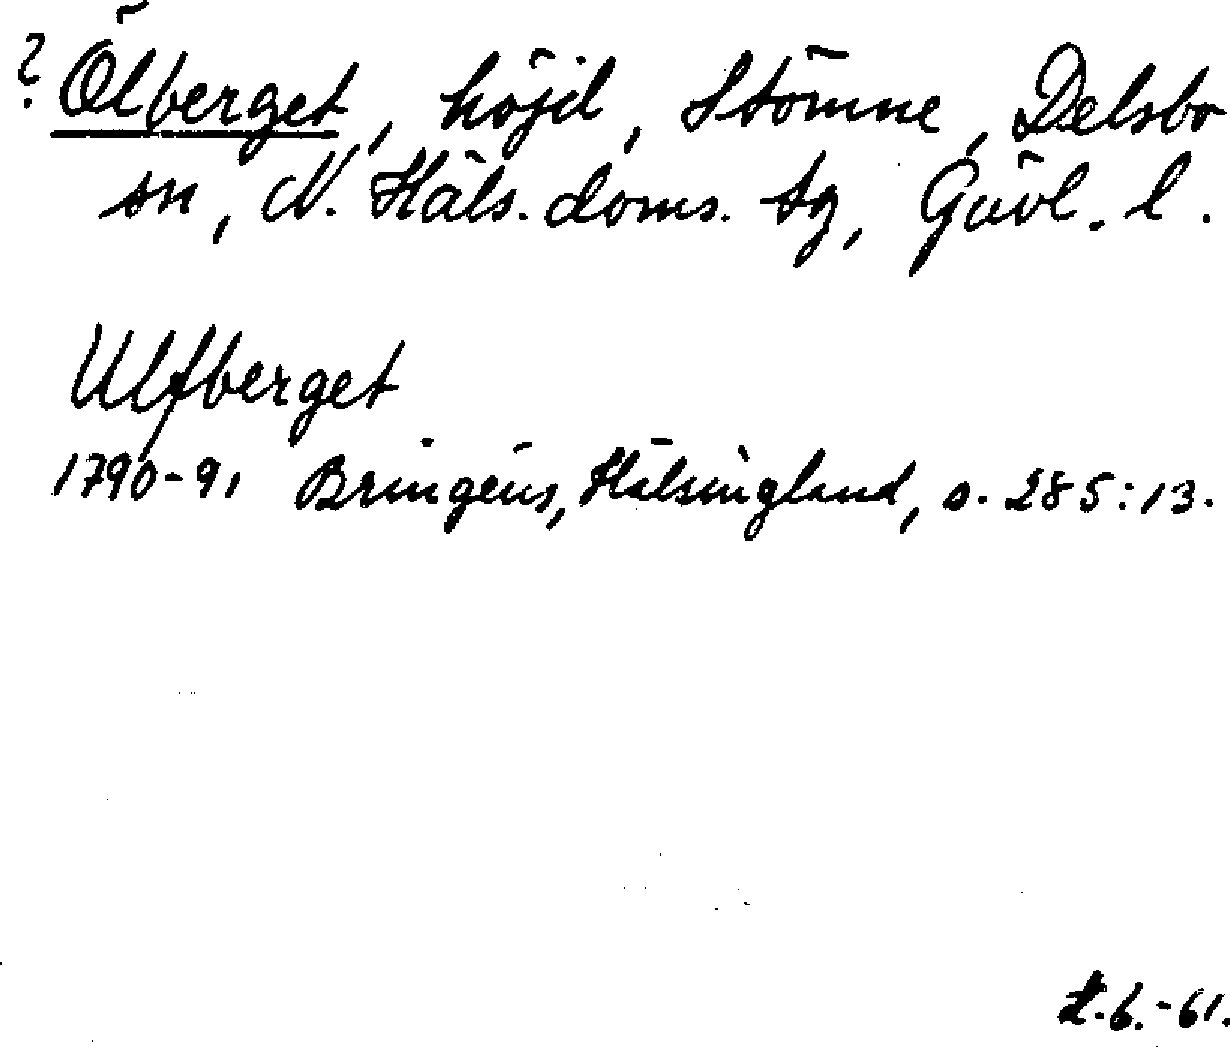 ? Ölberget, höjd, Stömne, Delsbo
sn, N. Häls. doms. tg, Gävl. l.
Ulfberget
1790-91 Bringéus, Hälsingland, s. 285:13.
6.-61.